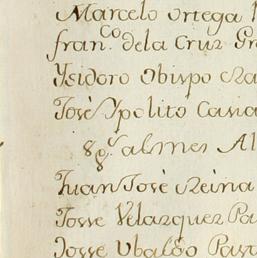 Marcelo Ortega
fran.co dela Cruz
Ysidoro Obispo
José Ypolito
Al
Juan José Reina
Josse Velazquez Pa
Josse Ubaldo Pas